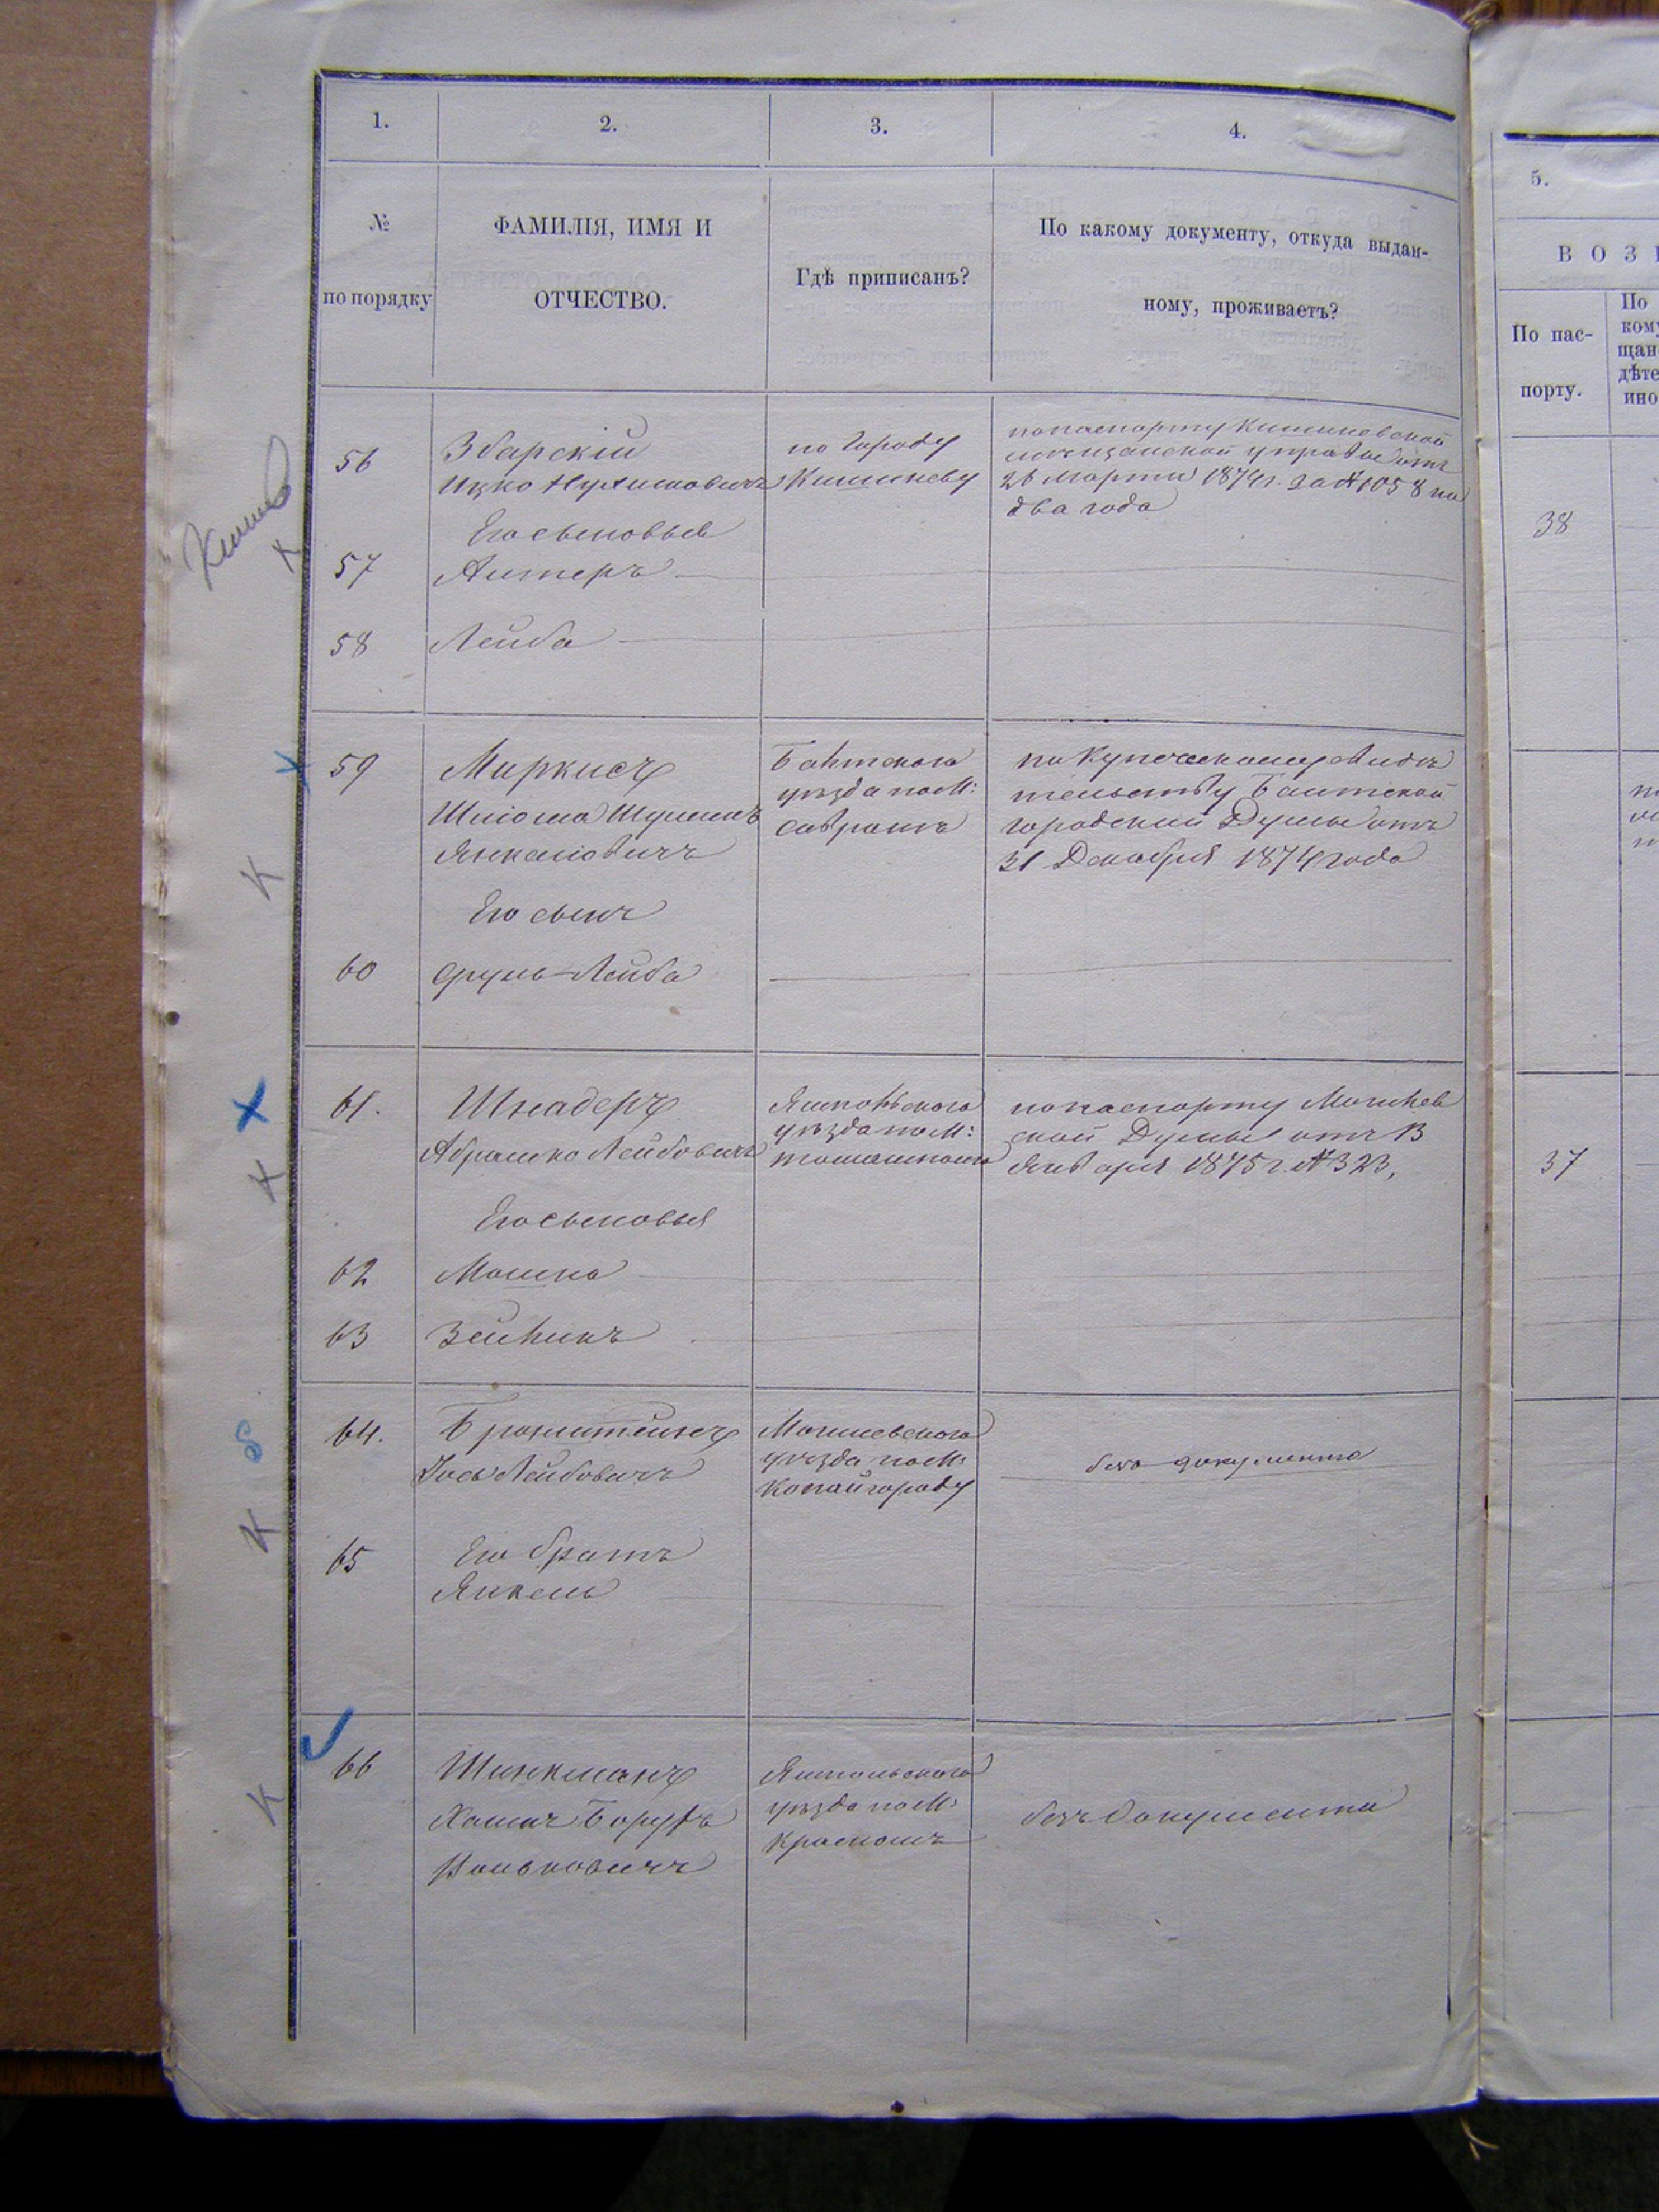 1.
2.
3.
4.
№
по порядку
ФАМИЛІЯ, ИМЯ И
ОТЧЕСТВО.
Гдѣ приписанъ?
По какому документу, откуда выдан-
ному, проживаетъ?
56
Збарскій
Ицко
по городу
Кишиневу
по паспорту Кишиневской
мѣщанской управы отъ
26 Марта 1874 г. за № 1058 на
два года
Его сыновья
57
58
Лейба
59
Миркисъ
Шлёма
Янкелювичъ
Балтскаго
уѣзда по м:
Саврань
по Купеческому свидѣ
тельству Балтской
городской Думы отъ
31 Декабря 1874 года
Его сынъ
60
Сруль-Лейба
61.
Шнадеръ
Абрамко Лейбовичъ
уѣзда по м:
по паспорту Могилев
ской Думы отъ 13
Января 1875 г. № 323,
Его сыновья
62
Мошко
63
Зейликъ
64.
Бронштейнъ
Іось Лейбовичъ
Могилевскаго
уѣзда по м:
Копайгороду
безъ документа
65
Его братъ
Янкель
66
Шинкманъ
Борухъ
Ямпольскаго
уѣзда по м:
Красномъ
безъ документа
5.
ВОЗ
По пас-
порту.
По
ком
щан
дѣте
ино
38
37